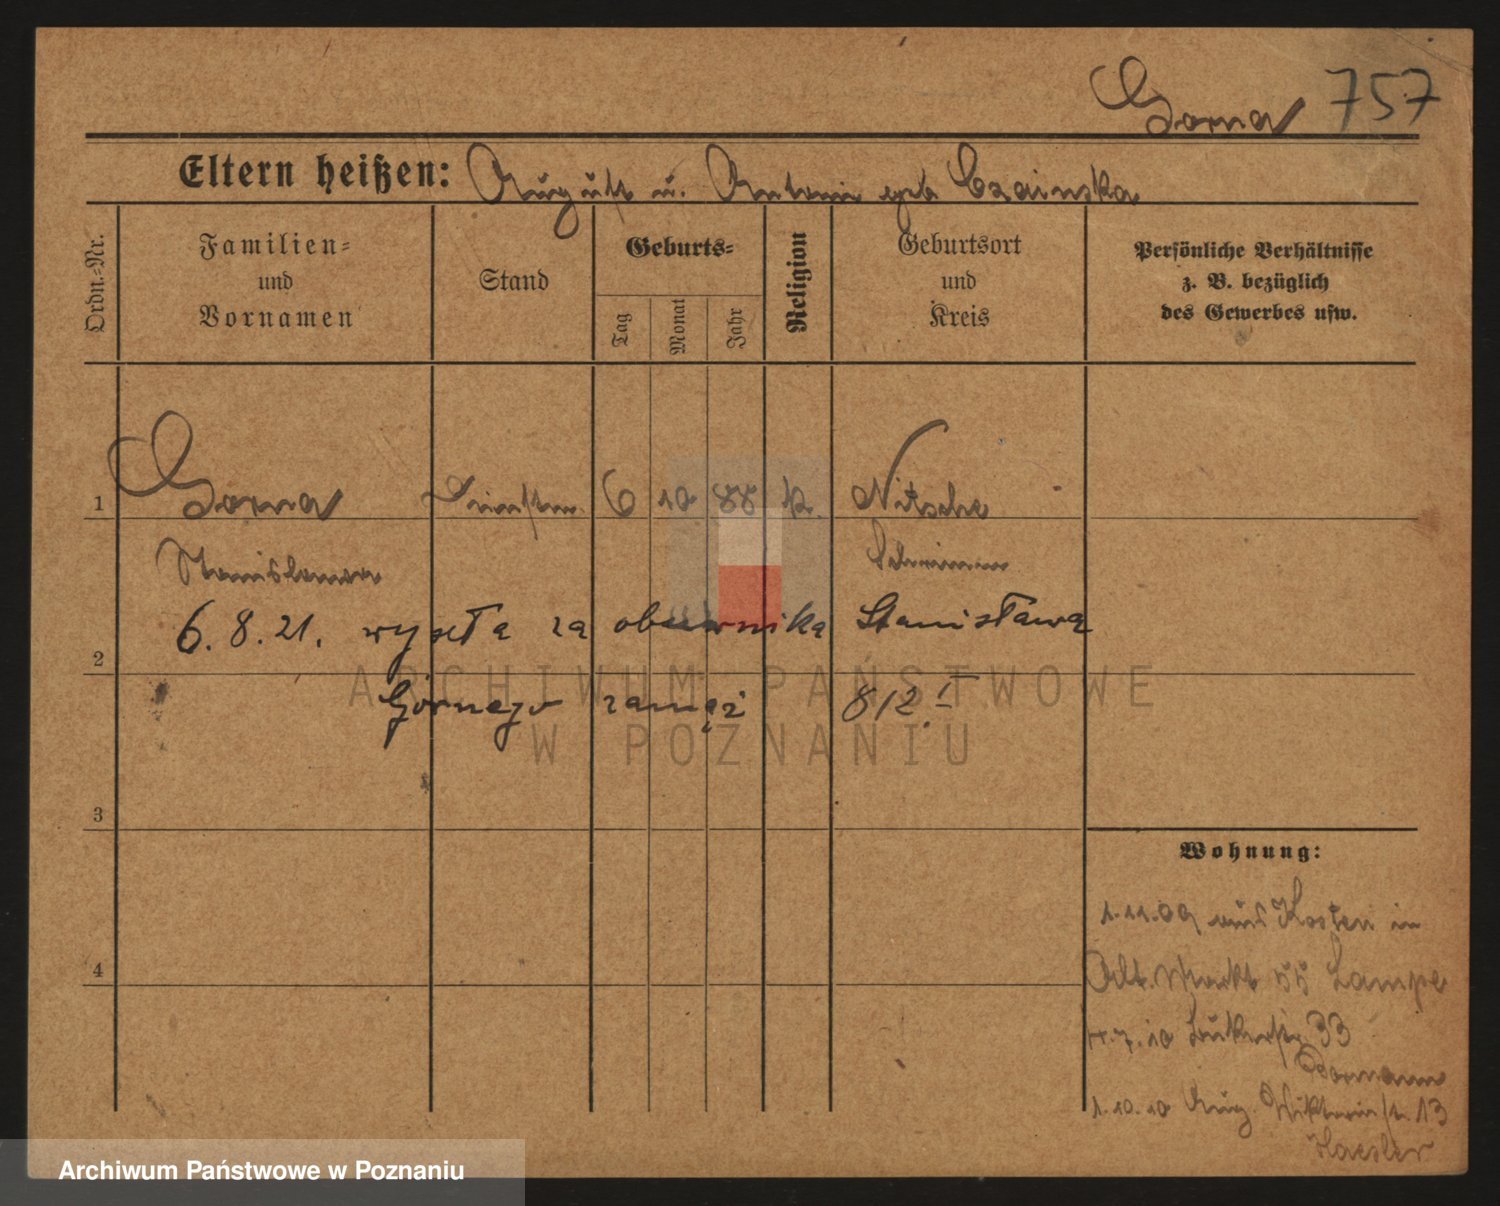 Gorna 757
Eltern heißen: August u. Antonie geb Czainska
Ordn.-Nr.
Familien-
und
Vornamen
Stand
Geburts-
Tag
Monat
Jahr
Religion
Geburtsort
und
Kreis
Persönliche Verhältnisse
z. B. bezüglich
des Gewerbes usw.
1 Gorna Dienstm. 6 10 88 k. Nitsche
Stanislawa Schrimm
6.8.21. wyszła za obuwnika Stanisława
2
Górnego zamęż 812 I
ARCHIWUM PAŃSTWOWE
W POZNANIU
3
Wohnung:
1.11.09 aus Kosten in
4
Alt. Markt 55 Lampe
7.10 33
1.10.10 Aug. Viktoriastr. 13
Haesler
Archiwum Państwowe w Poznaniu